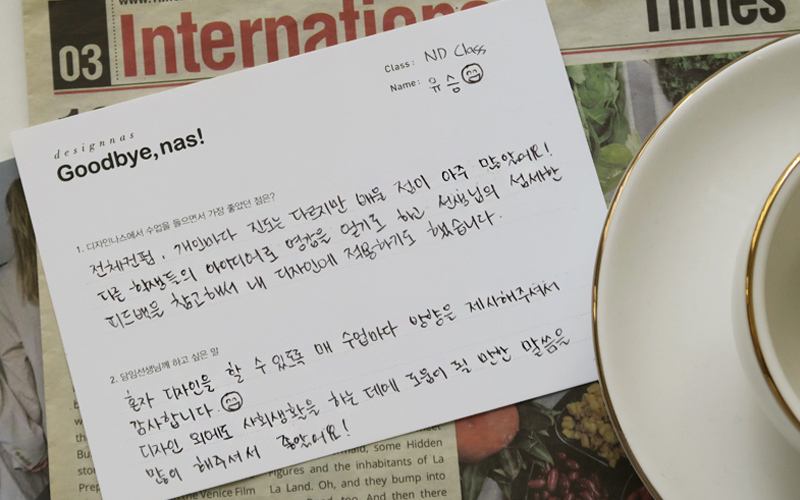 03
International
Times
Class: ND Class
Name: 유승
designnas
Goodbye, nas!
1. 디자인나스에서 수업을 들으면서 가장 좋았던 점은?
전체컨펌, 개인마다 진도는 다르지만 배울 점이 아주 많았어요!
다른 학생들의 아이디어로 영감을 얻기도 하고 선생님의 섬세한
피드백을 참고해서 내 디자인에 적용하기도 했습니다.
2. 담임선생님께 하고 싶은 말
혼자 디자인을 할 수 있도록 매 수업마다 방향을 제시해주셔서
감사합니다.
디자인 외에도 사회생활을 하는 데에 도움이 될 만한 말씀을
많이 해주셔서 좋았어요!
the Venice Film
some Hidden
Figures and the inhabitants of La
La Land. Oh, and they bump into
And then there